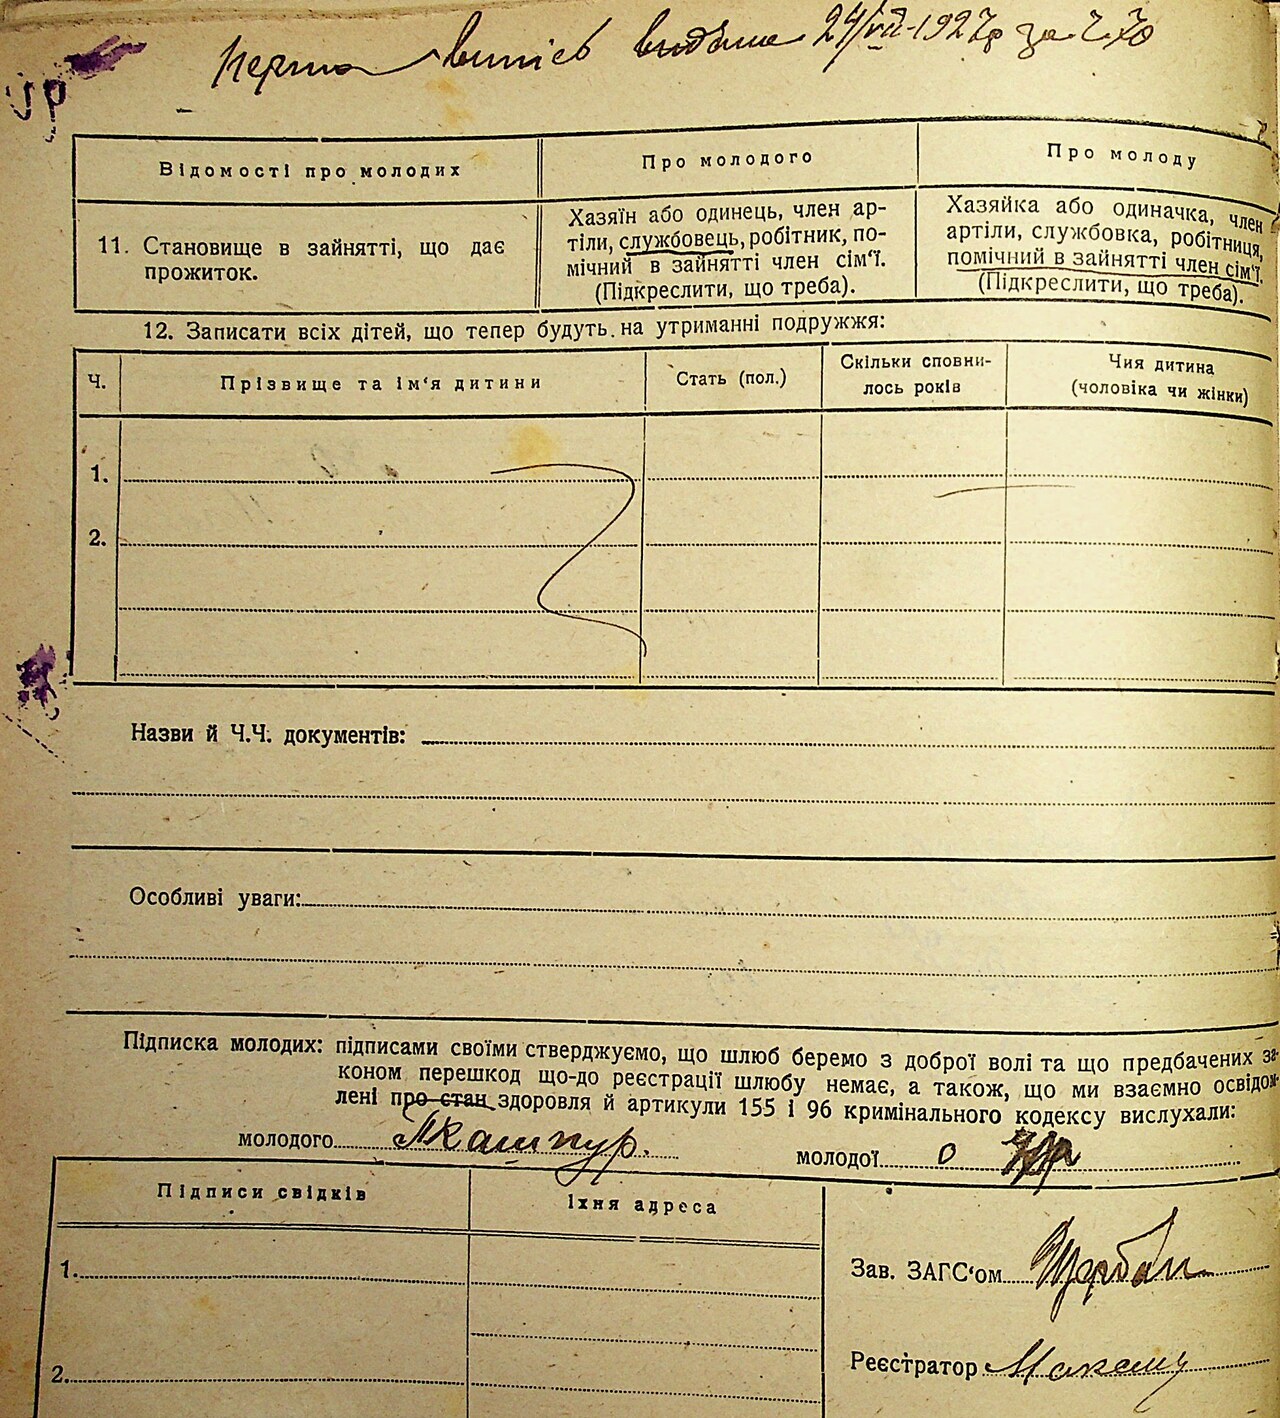 перша випіс видана 24/VII-1927р за ч 70
Відомості про молодих
Про молодого
Про молоду
11. Становище в зайнятті, що дає
прожиток.
Хазяїн або одинець, член ар-
тіли, службовець, робітник, по-
мічний в зайнятті член сім'ї.
(Підкреслити, що треба).
Хазяйка або одиначка, член
артіли, службовка, робітниця,
помічний в зайнятті член сім'ї.
(Підкреслити, що треба).
12. Записати всіх дітей, що тепер будуть на утриманні подружжя:
Ч.
Прізвище та ім'я дитини
Стать (пол.)
Скільки сповни-
лось років
Чия дитина
(чоловіка чи жінки)
1.
2.
Назви й Ч.Ч. документів:
Особливі уваги:
Підписка молодих: підписами своїми стверджуємо, що шлюб беремо з доброї волі та що предбачених за-
коном перешкод що-до реєстрації шлюбу немає, а також, що ми взаємно освідом-
лені про стан здоровля й артикули 155 і 96 кримінального кодексу вислухали:
молодого Ткашпур.
молодої
Підписи свідків
Їхня адреса
1.
2.
Зав. ЗАГС'ом Щербан
Реєстратор